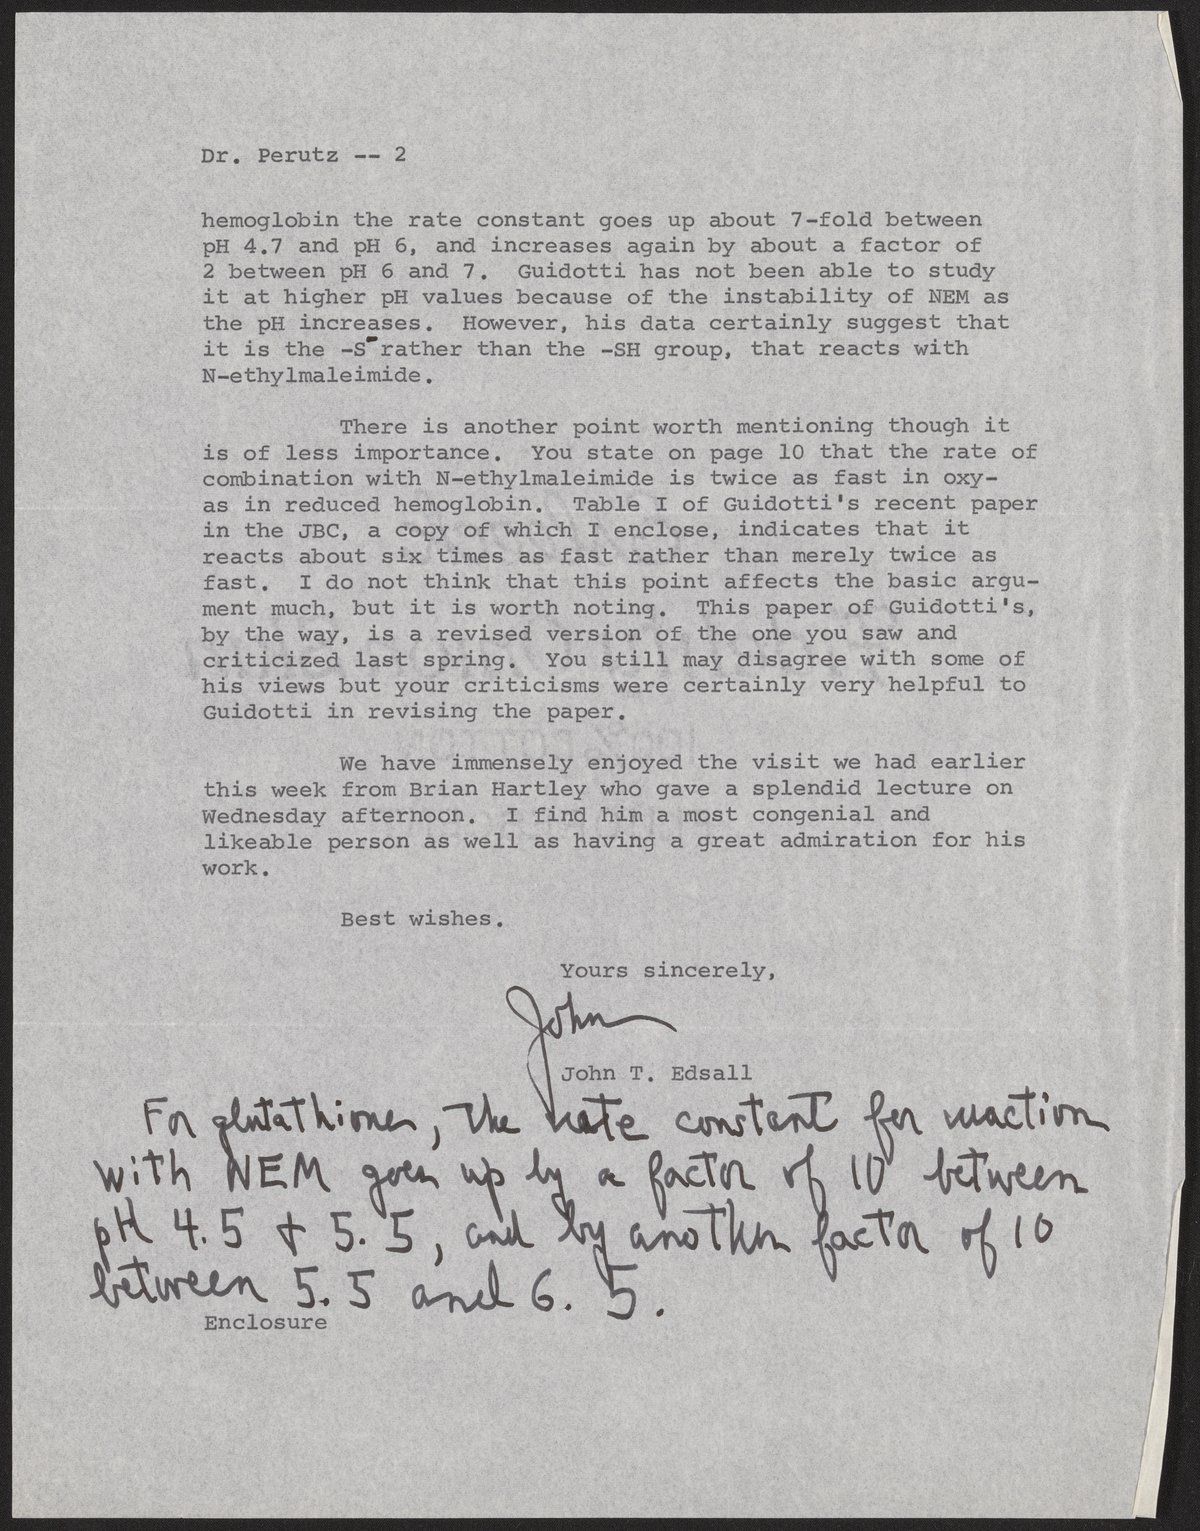 Dr. Perutz -- 2
hemoglobin the rate constant goes up about 7-fold between
pH 4.7 and pH 6, and increases again by about a factor of
2 between pH 6 and 7.  Guidotti has not been able to study
it at higher pH values because of the instability of NEM as
the pH increases.  However, his data certainly suggest that
it is the -S⁻ rather than the -SH group, that reacts with
N-ethylmaleimide.
There is another point worth mentioning though it
is of less importance.  You state on page 10 that the rate of
combination with N-ethylmaleimide is twice as fast in oxy-
as in reduced hemoglobin.  Table I of Guidotti's recent paper
in the JBC, a copy of which I enclose, indicates that it
reacts about six times as fast rather than merely twice as
fast.  I do not think that this point affects the basic argu-
ment much, but it is worth noting.  This paper of Guidotti's,
by the way, is a revised version of the one you saw and
criticized last spring.  You still may disagree with some of
his views but your criticisms were certainly very helpful to
Guidotti in revising the paper.
We have immensely enjoyed the visit we had earlier
this week from Brian Hartley who gave a splendid lecture on
Wednesday afternoon.  I find him a most congenial and
likeable person as well as having a great admiration for his
work.
Best wishes.
Yours sincerely,
John
John T. Edsall
For glutathione, the rate constant for reaction
with NEM goes up by a factor of 10 between
pH 4.5 + 5.5, and by another factor of 10
between 5.5 and 6.5.
Enclosure